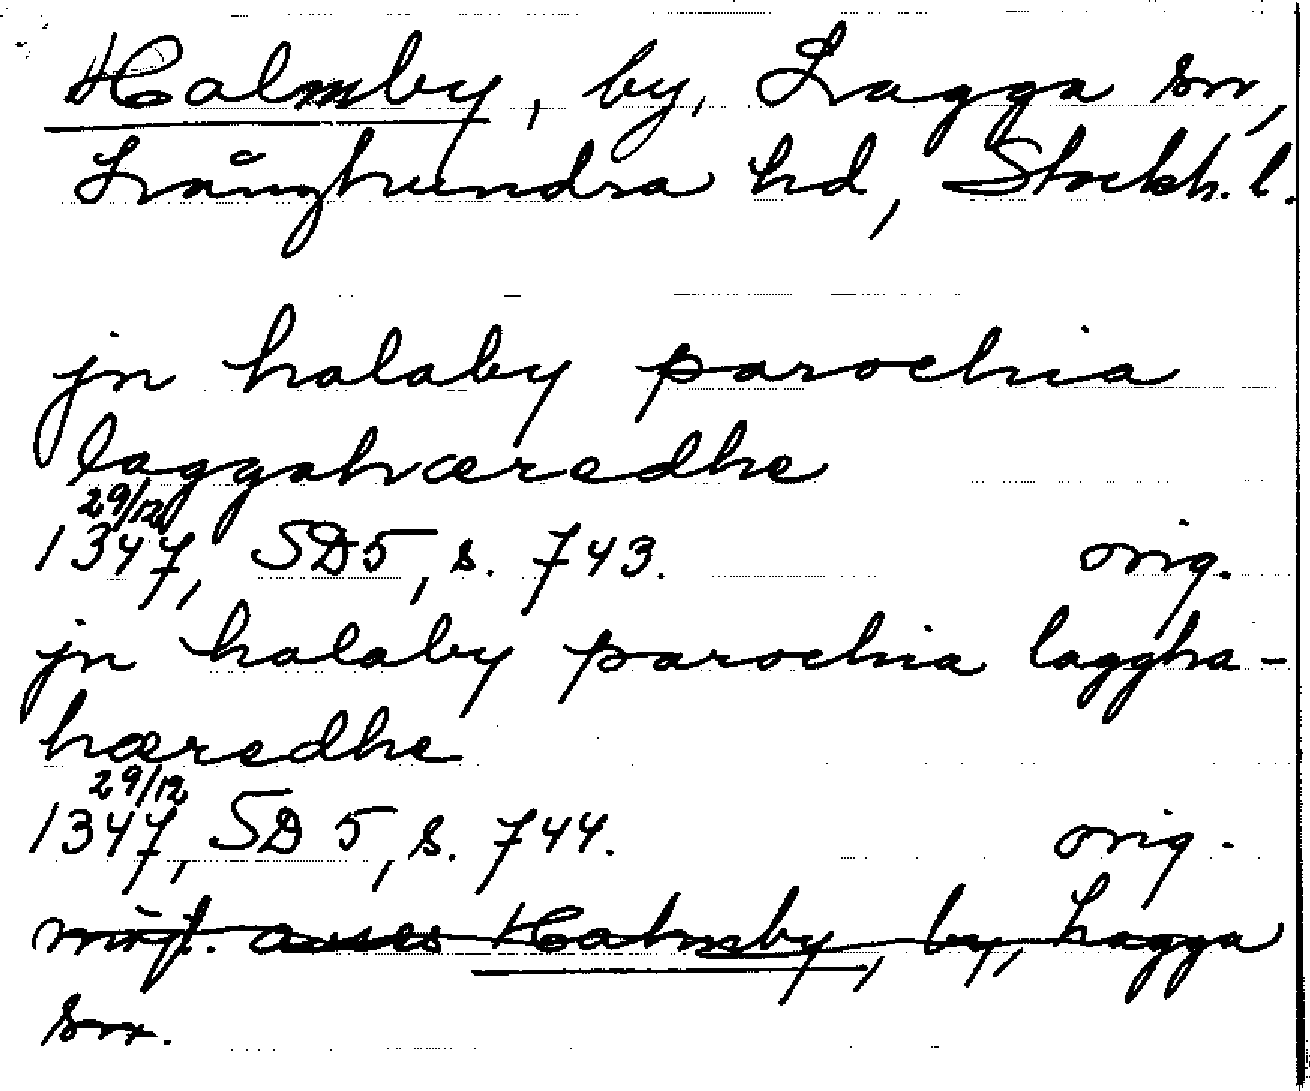 Halmby, by, Lagga sn,
Långhundra hd, Stockh. l.
jn halaby parochia
laggahæredhe
29/12
1347, SD 5, s. 743. orig.
jn halaby parochia laggha-
hæredhe
29/12
1347, SD 5, s. 744. orig.
möjl. avses Halmby, by, Lagga
sn.